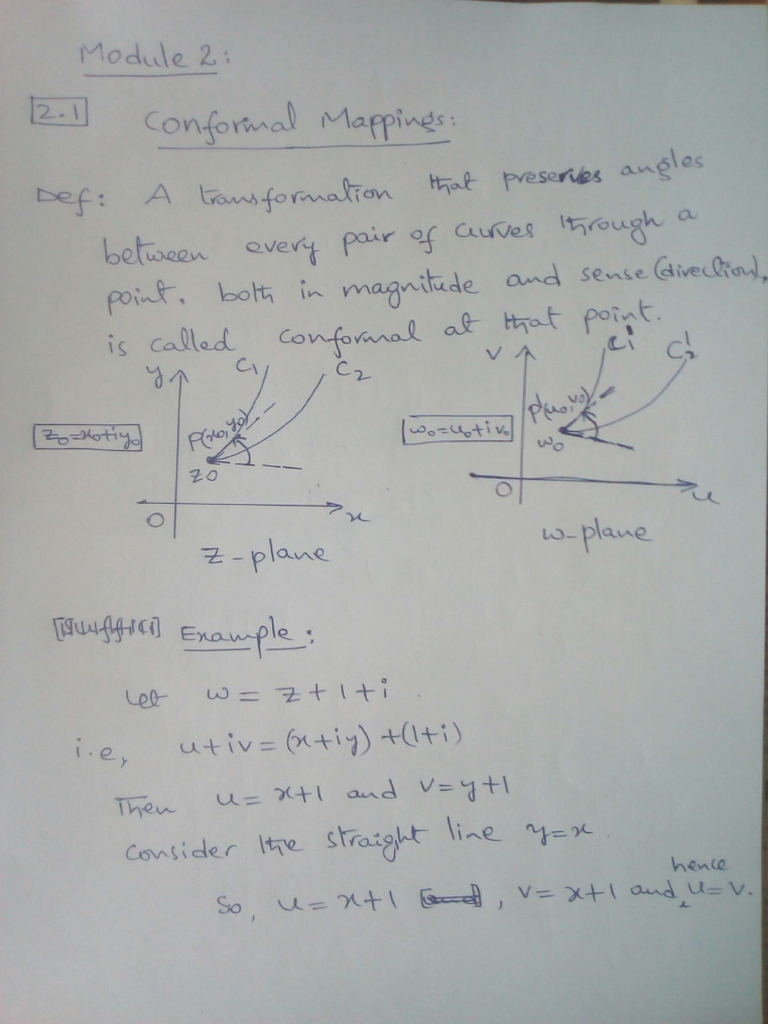 Module 2:
2.1 Conformal Mappings:
Def: A transformation that preserves angles
between every pair of curves through a
point, both in magnitude and sense (direction),
is called conformal at that point.
y C1 C2
z0=x0+iy0
P(x0,y0)
z0
O x
z-plane
v C1' C2'
w0=u0+iv0
P'(u0,v0)
w0
O u
w-plane
Example:
Let w = z+1+i.
i.e, u+iv = (x+iy) +(1+i)
Then u = x+1 and v=y+1
Consider the straight line y=x.
So, u = x+1, v = x+1 and, hence u=v.